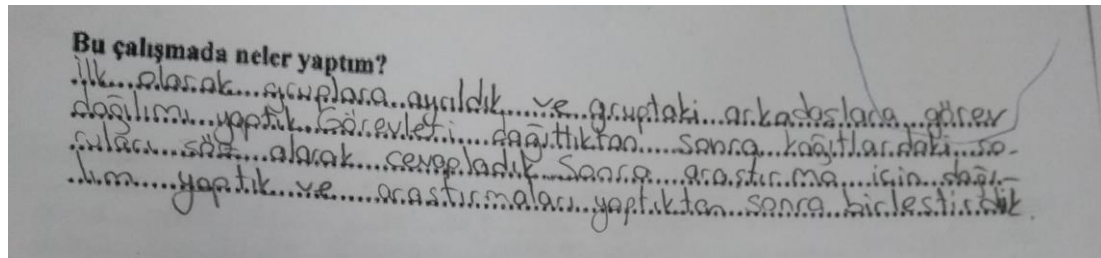 Bu çalışmada neler yaptım?
İlk olarak gruplara ayrıldık ve gruptaki arkadaşlara görev
dağılımı yaptık. Görevleri dağıttıktan sonra kağıtlardaki so-
ruları söz alarak cevapladık. Sonra araştırma için dağı-
lım yaptık ve araştırmaları yaptıktan sonra birleştirdik.